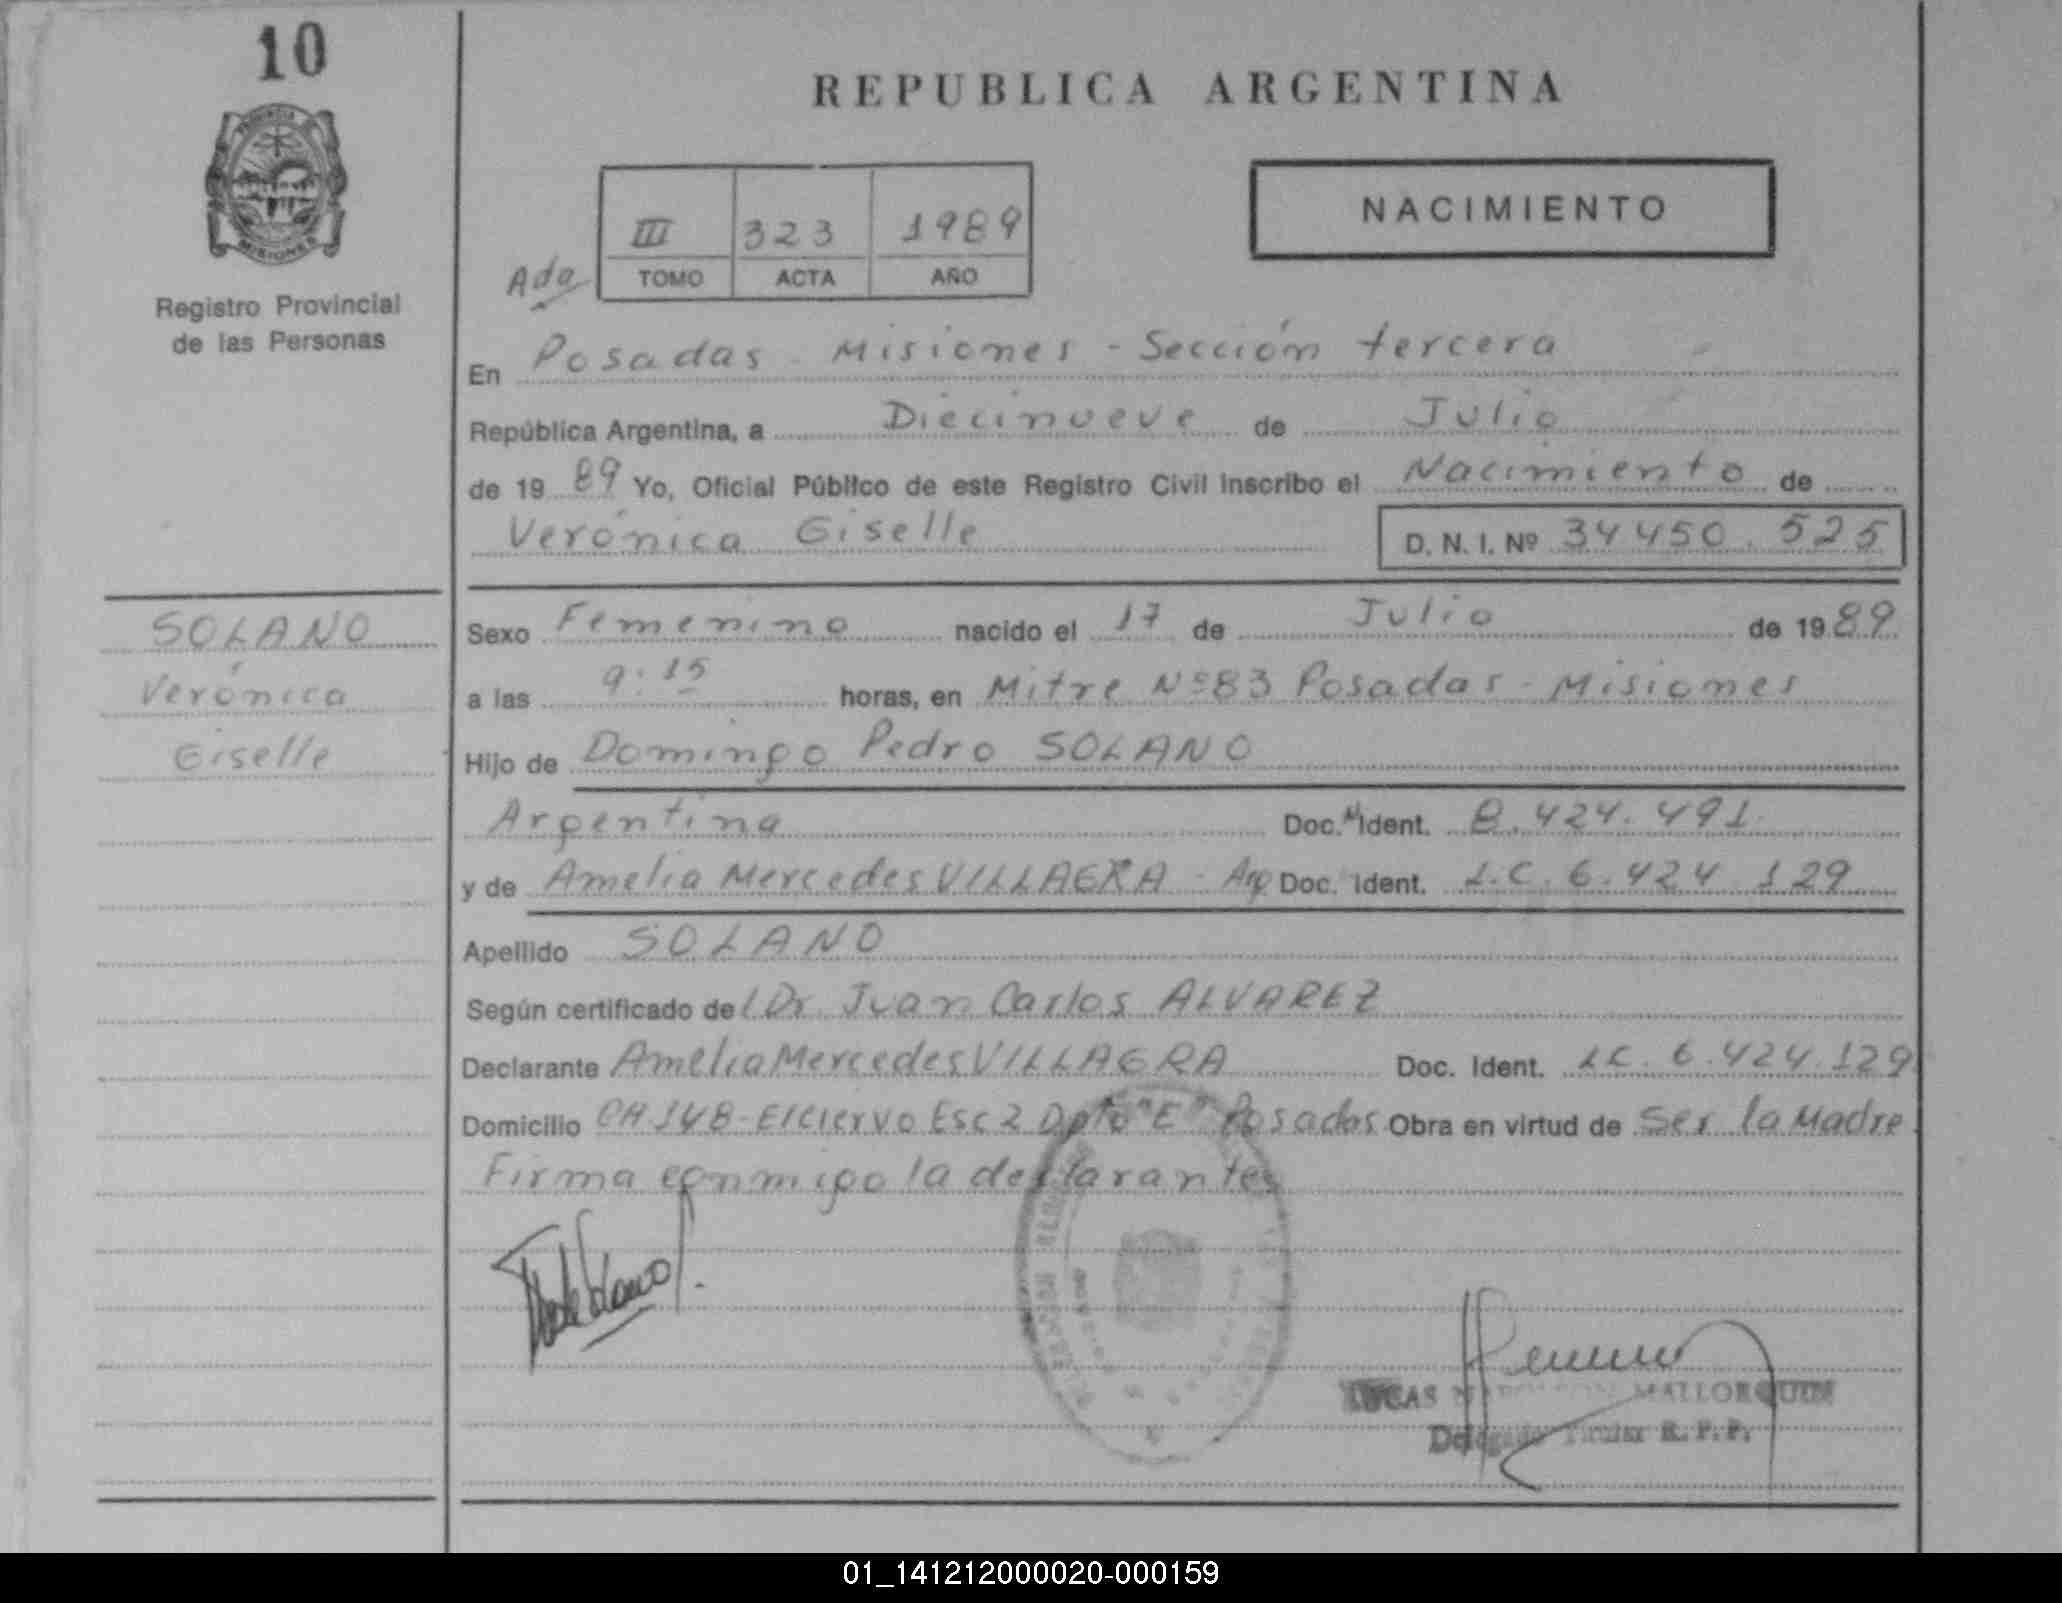 10
REPUBLICA ARGENTINA
PROVINCIA
MISIONES
Registro Provincial
de las Personas
III 323 1989
TOMO ACTA AÑO
NACIMIENTO
Ada
En Posadas - Misiones - Sección tercera
República Argentina, a Diecinueve de Julio
de 19 89 Yo, Oficial Público de este Registro Civil inscribo el Nacimiento de
Verónica Giselle D. N. I. Nº 34450.525
SOLANO
Verónica
Giselle
Sexo Femenino nacido el 17 de Julio de 19 89
a las 9:15 horas, en Mitre Nº83 Posadas - Misiones
Hijo de Domingo Pedro SOLANO
Argentina Doc. Ident. 8.424.491
y de Amelia Mercedes VILLAGRA - Arg Doc. Ident. L.C. 6.424.129
Apellido SOLANO
Según certificado del Dr. Juan Carlos ALVAREZ
Declarante Amelia Mercedes VILLAGRA Doc. Ident. LC. 6.424.129
Domicilio CH 148 - El Ciervo Esc 2 Dpto "E" Posadas Obra en virtud de Ser la Madre
Firma conmigo la declarante
LUCAS MALLORQUIN
Delegado Titular R. P. P.
01_141212000020-000159